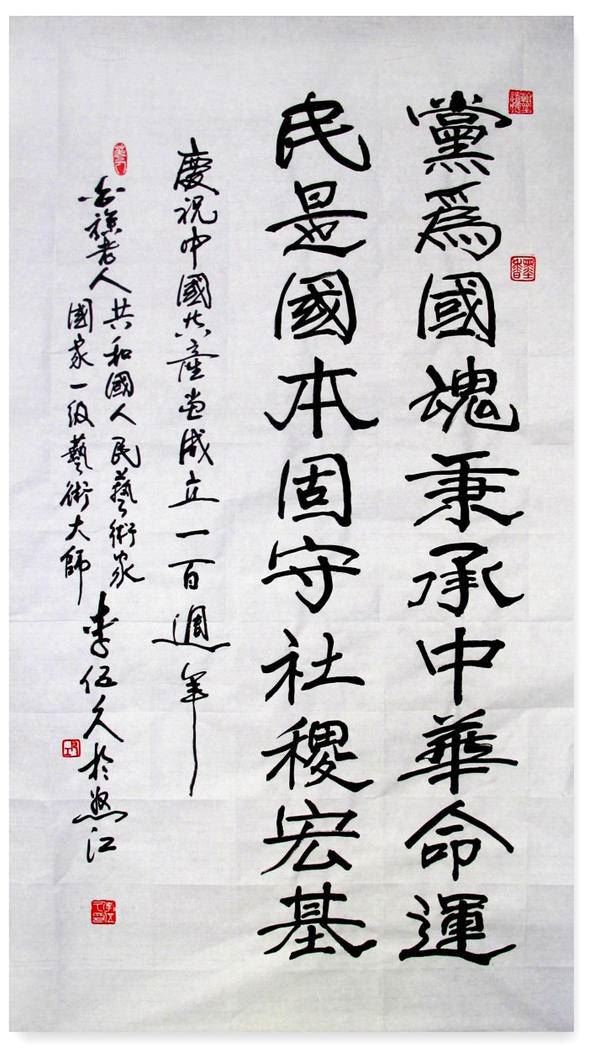 黨為國魂秉承中華命運
民是國本固守社稷宏基
慶祝中國共產党成立一百週年
老人
共和國人民藝術家
國家一級藝術大師
李伍久於怒江